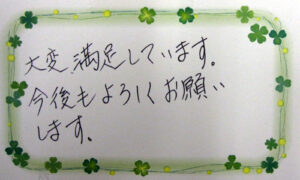 大変満足しています。
今後もよろしくお願い
します。